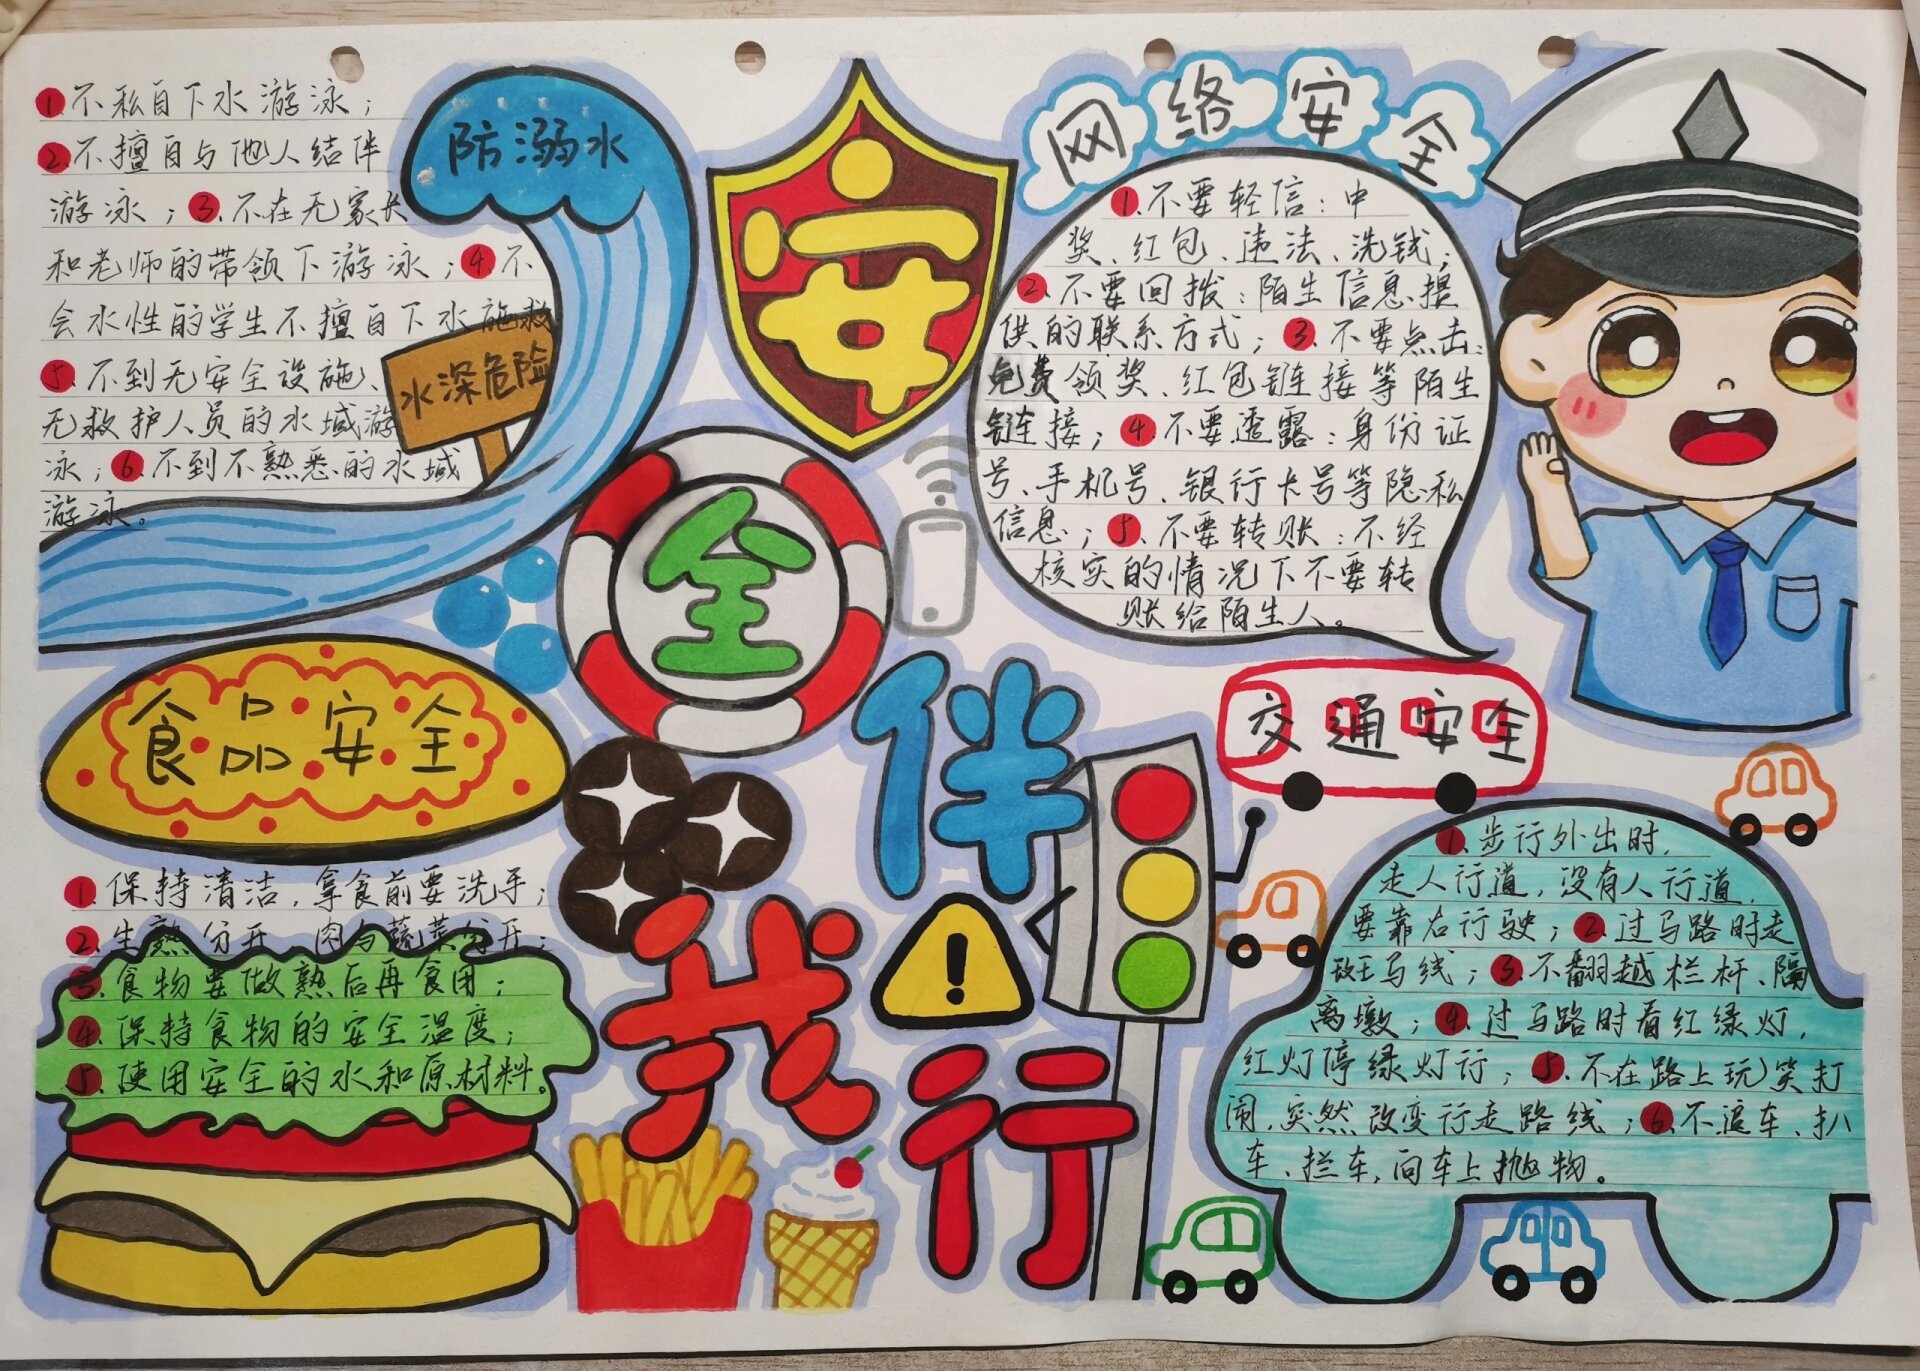 防溺水
1.不私自下水游泳；
2.不擅自与他人结伴
游泳；3.不在无家长
和老师的带领下游泳；4.不
会水性的学生不擅自下水施救
5.不到无安全设施、
无救护人员的水域游
泳；6.不到不熟悉的水域
游泳。
水深危险
安
全
伴
我
行
网络安全
1.不要轻信：中
奖、红包、违法、洗钱；
2.不要回拨：陌生信息提
供的联系方式；3.不要点击：
免费领奖、红包链接等陌生
链接；4.不要透露：身份证
号、手机号、银行卡号等隐私
信息；5.不要转账：不经
核实的情况下不要转
账给陌生人。
食品安全
1.保持清洁，拿食前要洗手；
2.生熟分开 肉与蔬菜分开；
3.食物要做熟后再食用；
4.保持食物的安全温度；
5.使用安全的水和原材料。
交通安全
1.步行外出时，
走人行道，没有人行道，
要靠右行驶；2.过马路时走
斑马线；3.不翻越栏杆、隔
离墩；4.过马路时看红绿灯，
红灯停绿灯行；5.不在路上玩笑打
闹，突然改变行走路线；6.不追车、扒
车、拦车，向车上抛物。